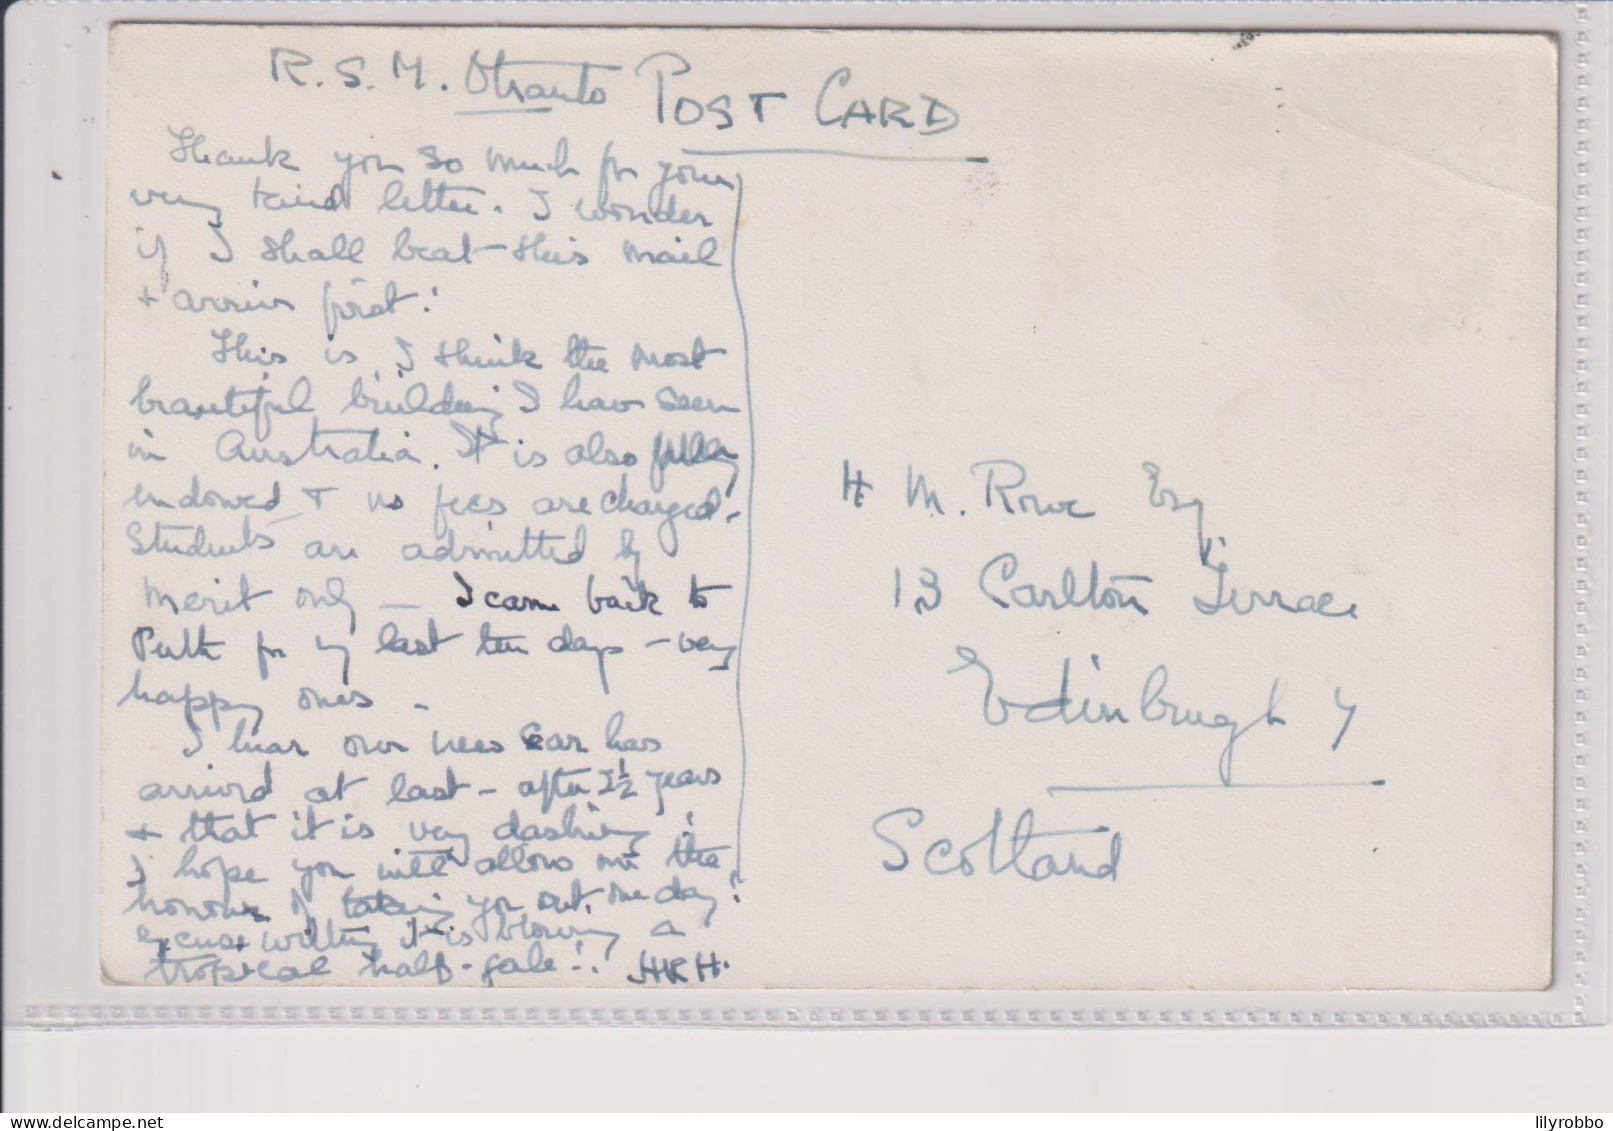 R.S.M. Otranto POST CARD
Thank you so much for your
very kind letter. I wonder
if I shall beat this mail
+ arrive first!
This is, I think the most
beautiful building I have seen
in Australia. It is also fully
endowed + no fees are charged.
Students are admitted by
merit only — I came back to
Perth for my last ten days – very
happy ones –
I hear our new car has
arrived at last – after 2½ years
+ that it is very dashing!
I hope you will allow me the
honour of taking you out, one day!
Excuse writing it is blowing a
tropical half-gale!. HRH.
H M. Rowe Esq
13 Carlton Terrace
Edinburgh 7
Scotland
lilyrobbo